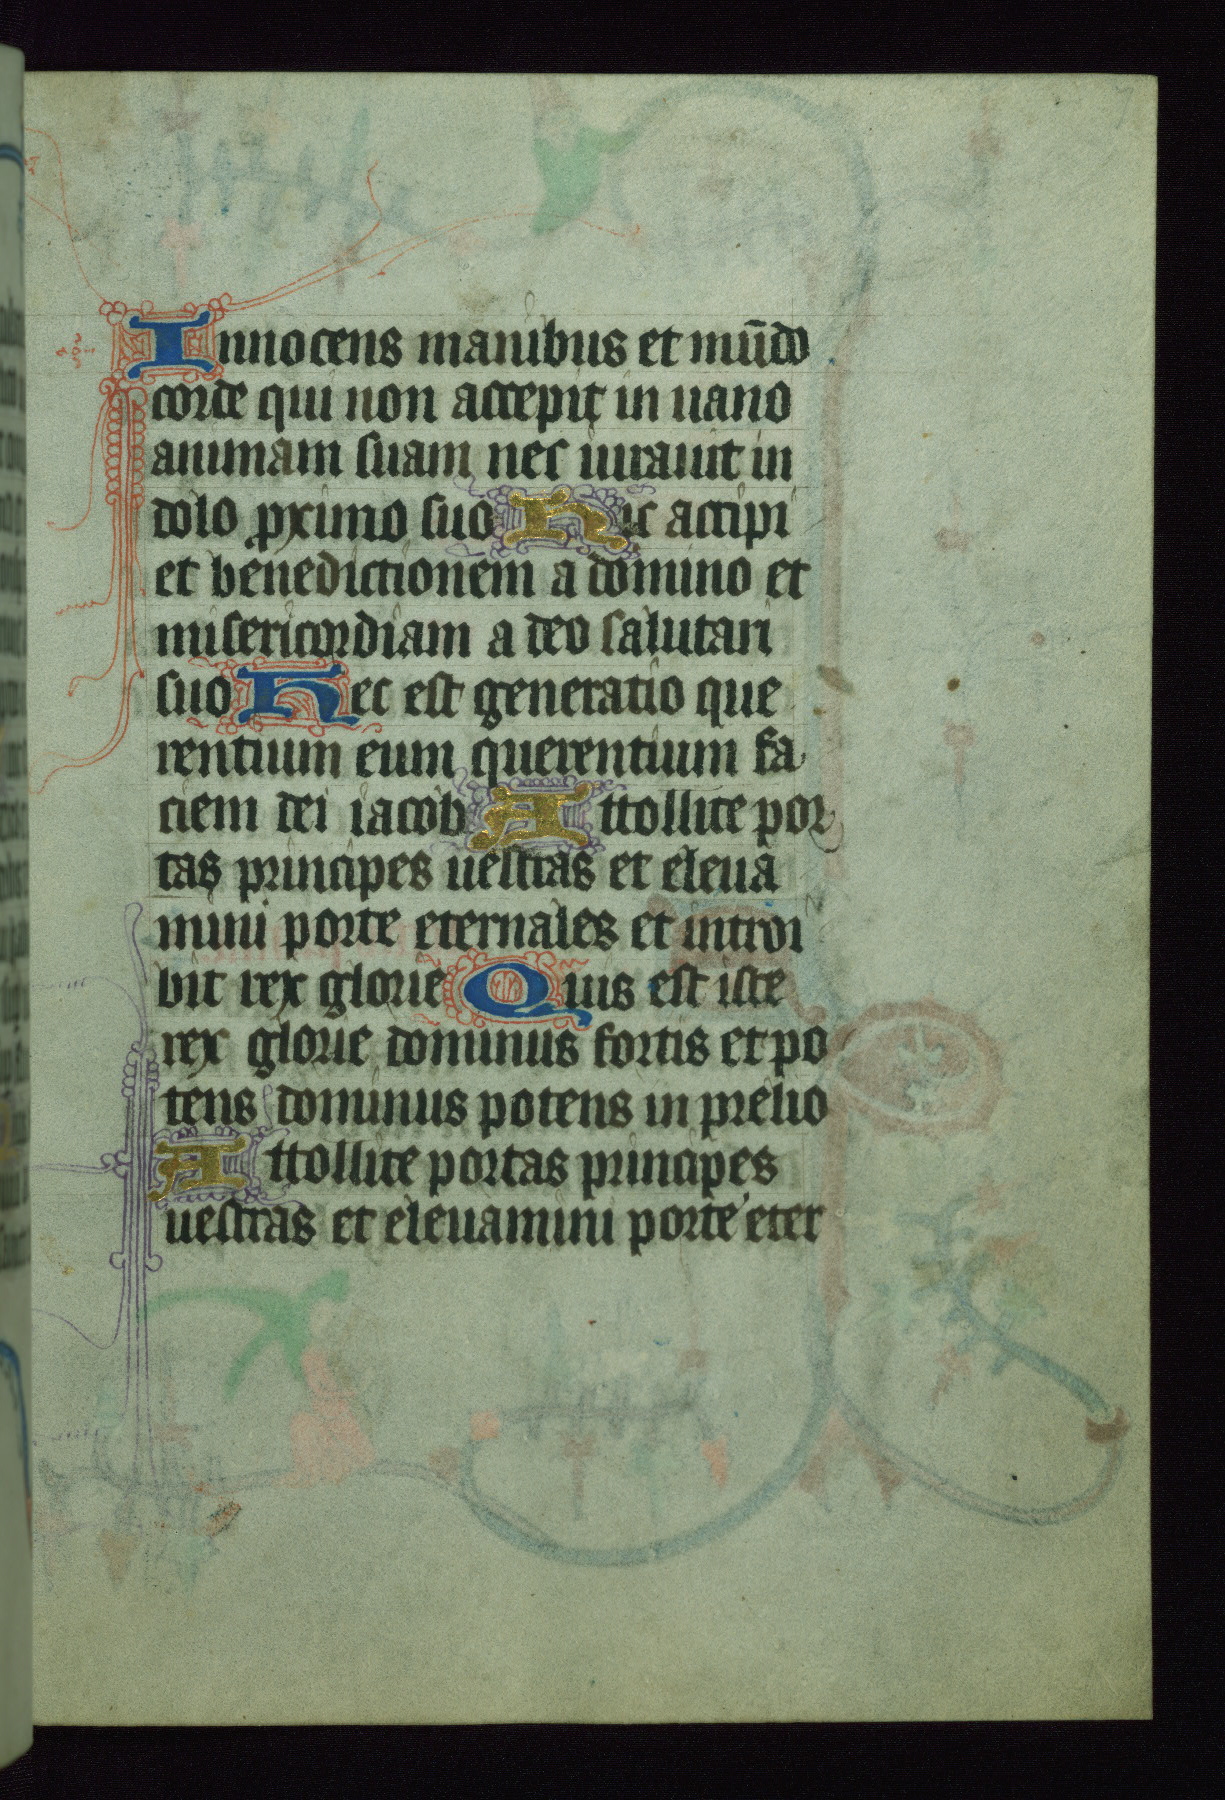 Innocens manibus et mūdo
corde qui non accepit in uano
animam suam nec iurauit in
dolo ꝓximo suo Hic accipi
et benedictionem a domino et
misericordiam a deo salutari
suo Hec est generatio que
rentium eum querentium fa
ciem dei iacob Attollite por
tas principes uestras et eleua
mini porte eternales et introi
bit rex glorie Quis est iste
rex glorie dominus fortis et po
tens dominus potens in prelio
Attollite portas principes
uestras et eleuamini porte eter